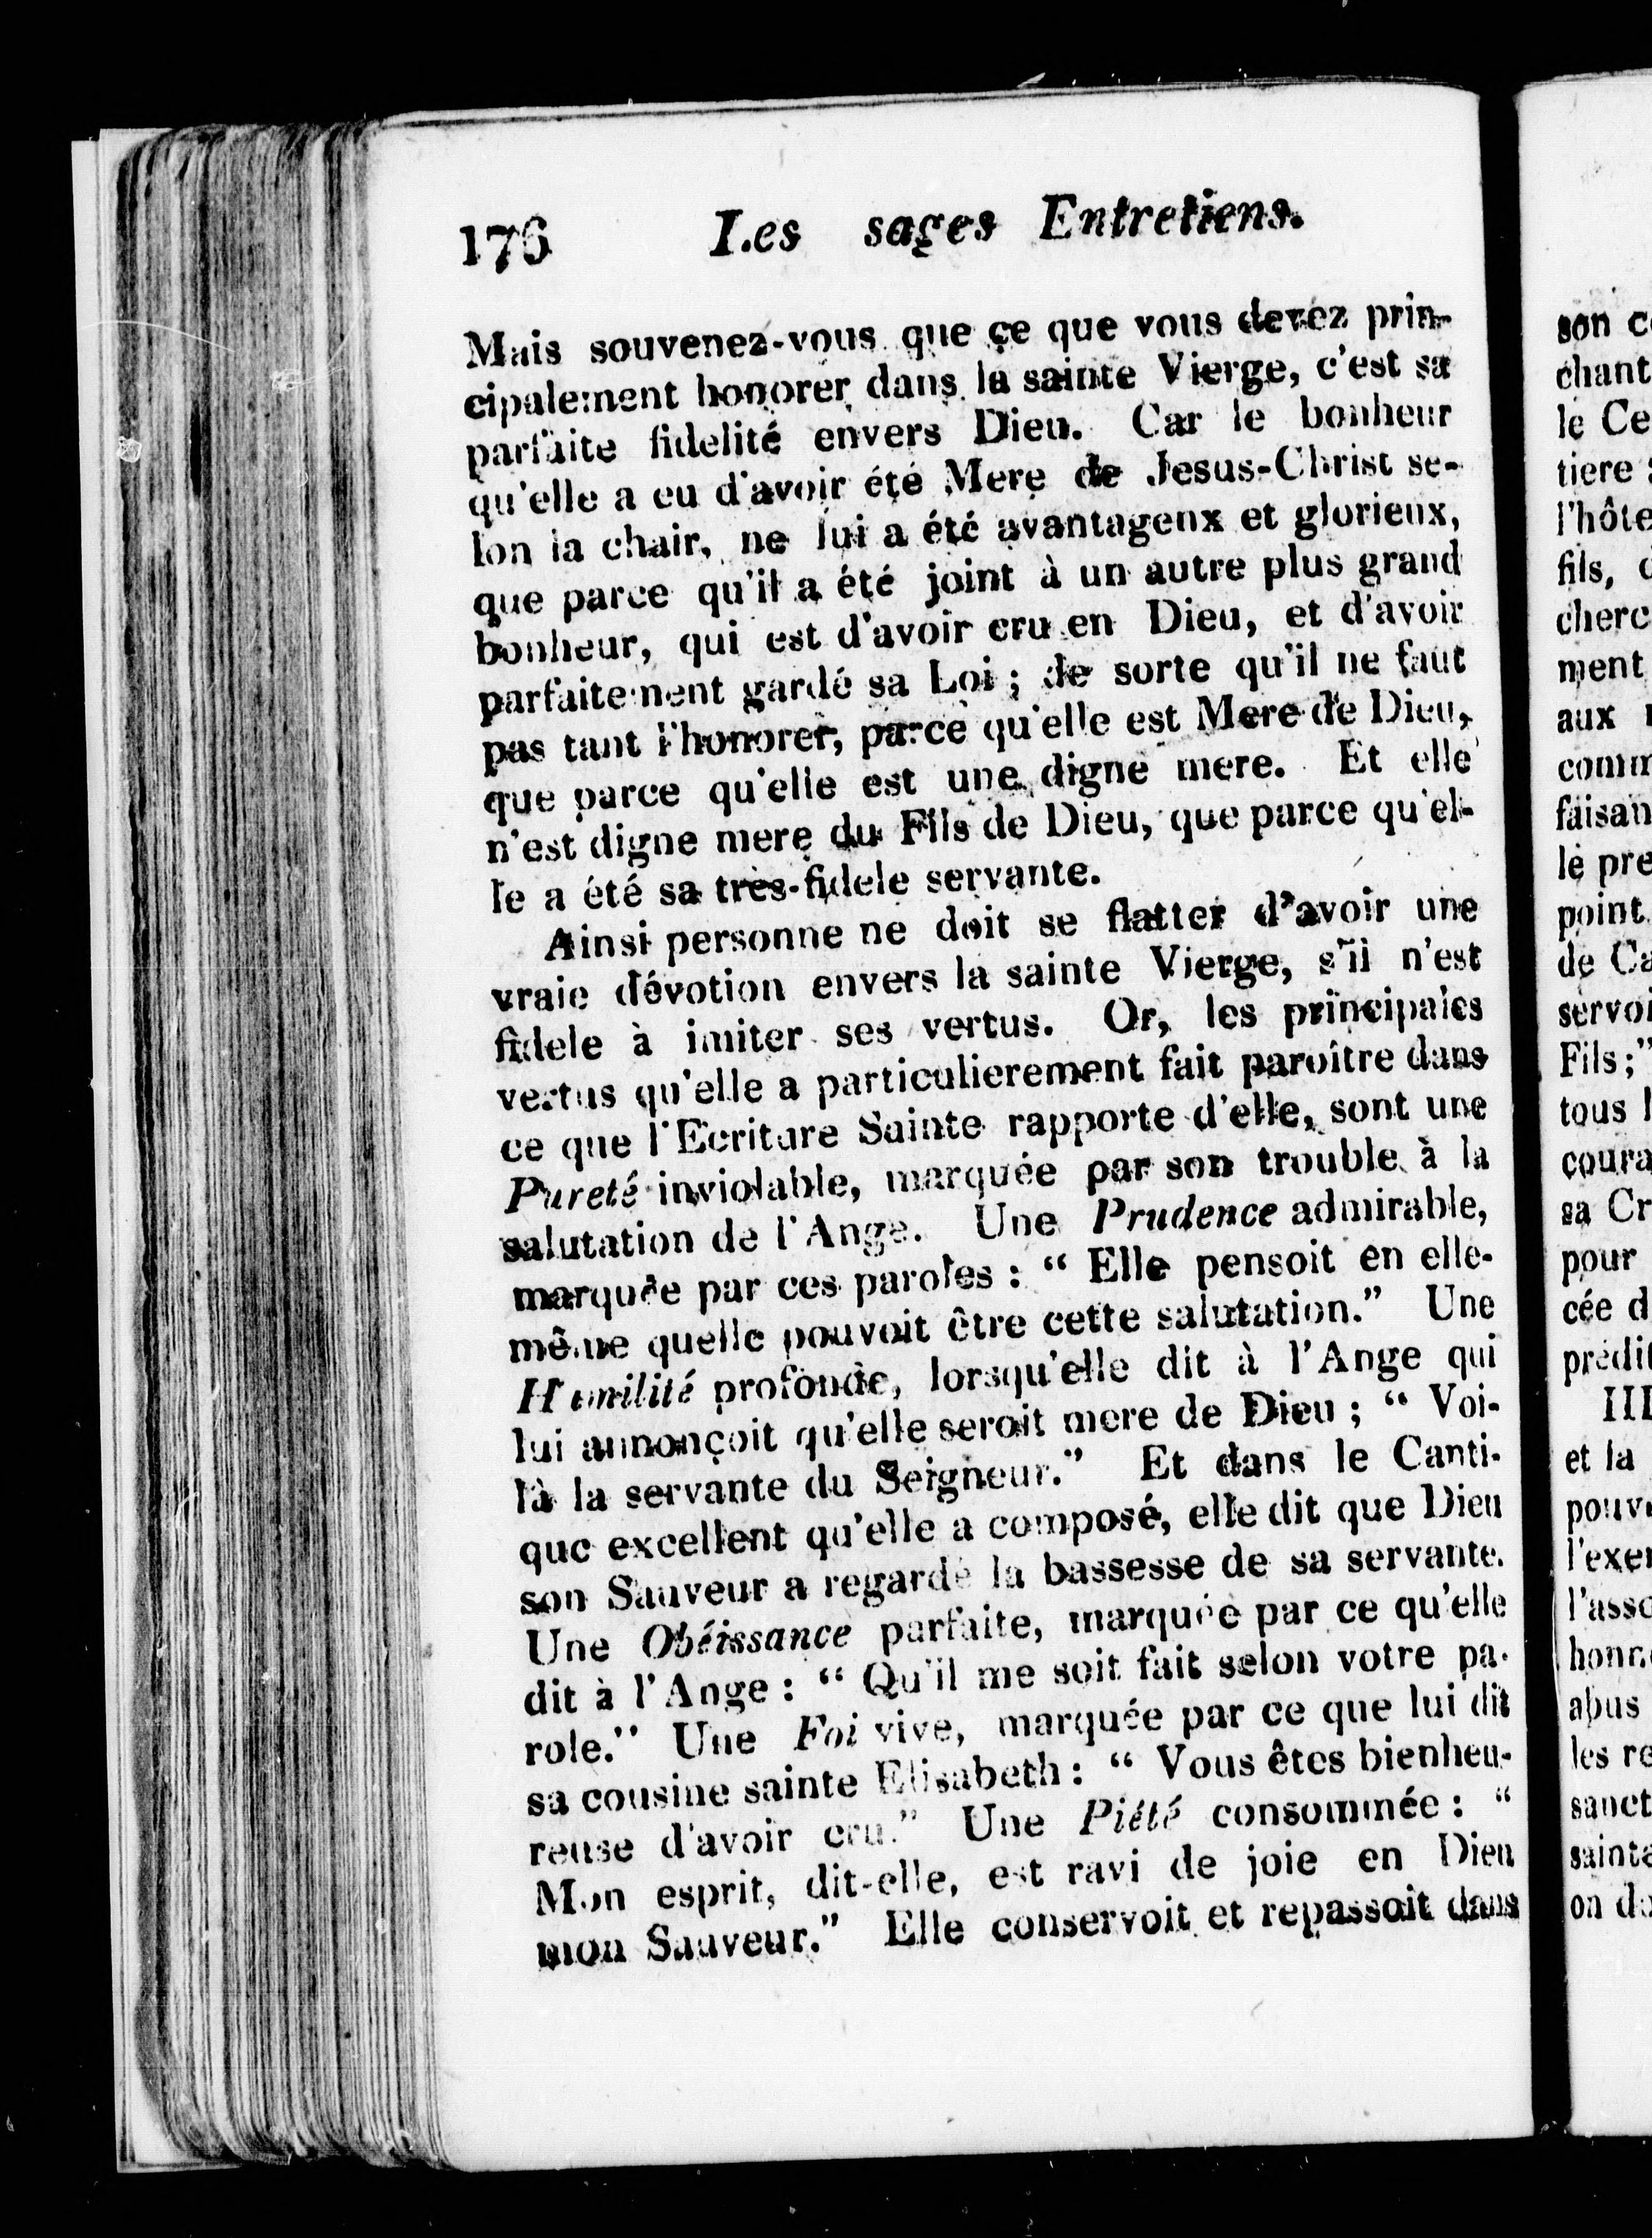 176 Les sages Entretiens.
Mais souvenez-vous que ce que vous devez prin-
cipalement honorer dans la sainte Vierge, c'est sa
parfaite fidelité envers Dieu. Car le bonheur
qu'elle a eu d'avoir été Mere de Jesus-Christ se-
lon la chair, ne lui a été avantageux et glorieux,
que parce qu'il a été joint à un autre plus grand
bonheur, qui est d'avoir cru en Dieu, et d'avoir
parfaitement gardé sa Loi ; de sorte qu'il ne faut
pas tant l'honorer, parce qu'elle est Mere de Dieu,
que parce qu'elle est une digne mere. Et elle
n'est digne mere du Fils de Dieu, que parce qu'el-
le a été sa très-fidele servante.
Ainsi personne ne doit se flatter d'avoir une
vraie dévotion envers la sainte Vierge, s'il n'est
fidele à imiter ses vertus. Or, les principales
vertus qu'elle a particulierement fait paroître dans
ce que l'Ecriture Sainte rapporte d'elle, sont une
Pureté inviolable, marquée par son trouble à la
salutation de l'Ange. Une Prudence admirable,
marquée par ces paroles : “ Elle pensoit en elle-
même quelle pouvoit être cette salutation.” Une
Humilité profonde, lorsqu'elle dit à l'Ange qui
lui annonçoit qu'elle seroit mere de Dieu ; “ Voi-
là la servante du Seigneur.” Et dans le Canti-
que excellent qu'elle a composé, elle dit que Dieu
son Sauveur a regardé la bassesse de sa servante.
Une Obéissance parfaite, marquée par ce qu'elle
dit à l'Ange : “ Qu'il me soit fait selon votre pa-
role.” Une Foi vive, marquée par ce que lui dit
sa cousine sainte Elisabeth : “ Vous êtes bienheu-
reuse d'avoir cru.” Une Piété consommée : “
Mon esprit, dit-elle, est ravi de joie en Dieu
mon Sauveur.” Elle conservoit et repassoit dans
son c
chant
le Ce
tiere
l'hôte
fils,
cherc
ment
aux
comm
faisan
le pre
point
de Ca
servoi
Fils ;”
tous
coura
sa Cr
pour
cée d
prédit
III
et la
pouv
l'exe
l'asso
honn
abus
les re
sanct
sainte
on d